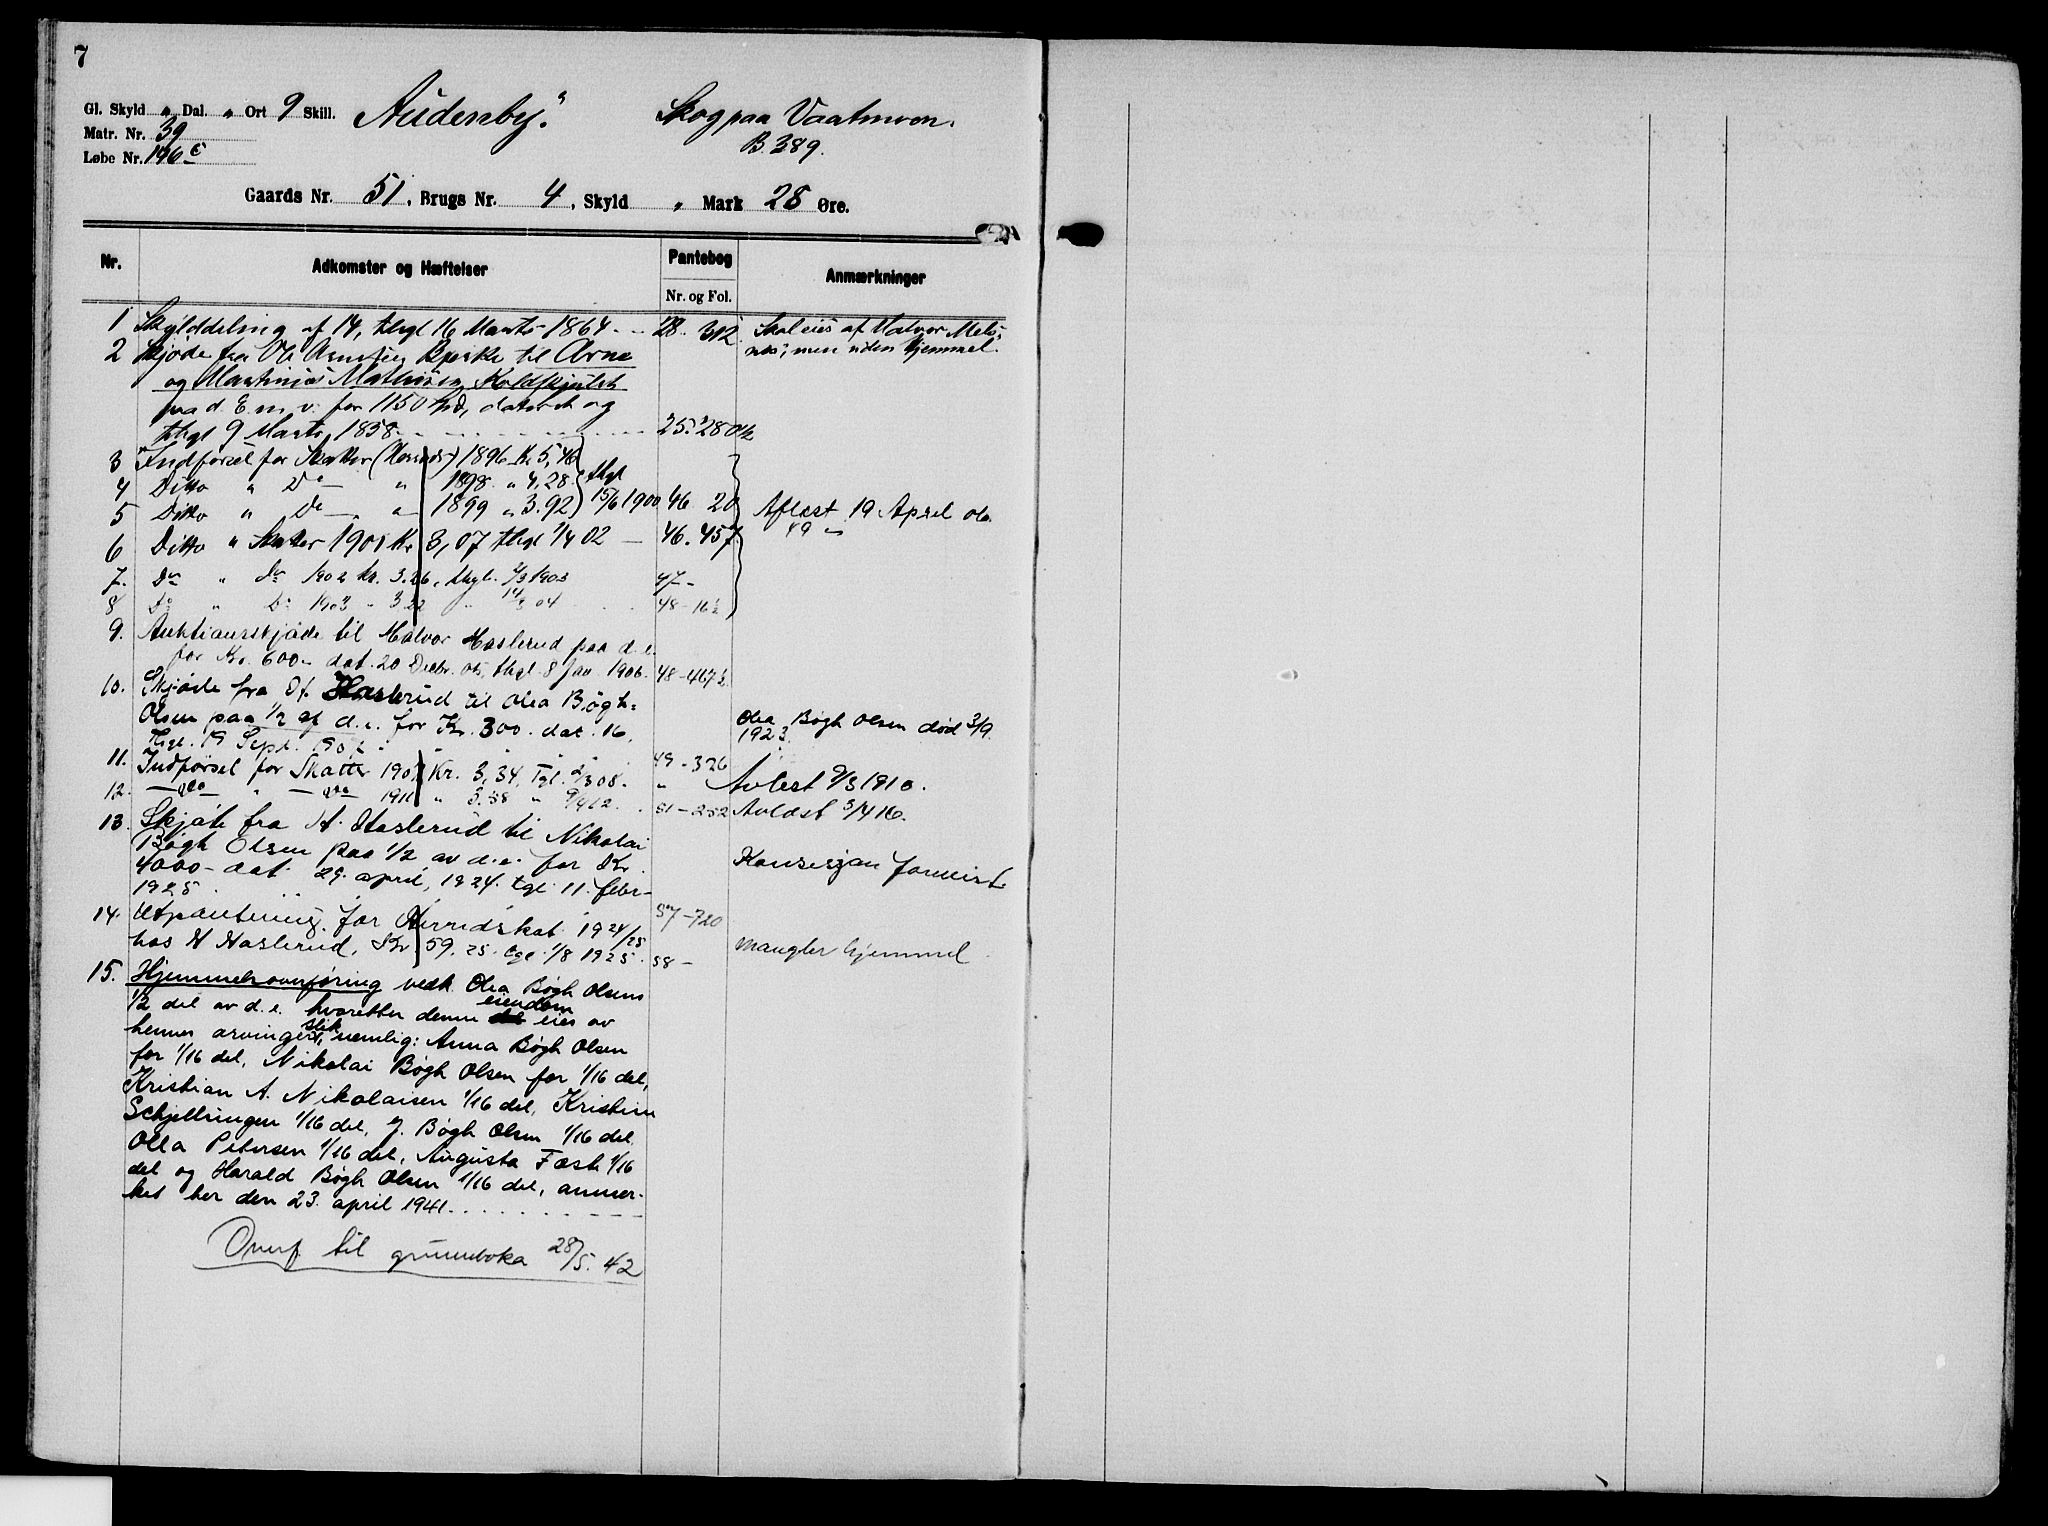 7
Gl. Skyld „ Dal. „ Ort 9 Skill. Audensby. Skog paa Vaatmoen.
Matr. Nr. 39 B. 389.
Løbe Nr. 196 c
Gaards Nr. 51, Brugs Nr. 4, Skyld „ Mark 28 Øre.
Nr. Adkomster og Hæftelser Pantebog Anmærkninger
Nr. og Fol.
1 Skylddeling af 14, thgl 16 Marts 1864 28. 312. Skal eies af Halvor Mels-
2 Skjøde fra Ole til Arne næs, men uden Hjemmel.
og Martinius Mathisen
paa d. E. m. v. for 1150 Spd, dateret og
thgl 9 Marts 1858 25. 280
3 Indførsel for Skatter 1896 Kr 5,46
4 Ditto „ Do „ 1898 „ 4,28 thgl
5 Ditto „ Do „ 1899 „ 3.92 15/6 1900 46 20 Aflæst 19 April
6 Ditto „ Skatter 1901 Kr 3,07 thgl 1/4 02 46. 457
7. Do „ Do 1902 Kr. 3.26, thgl. 1903 47-
8 Do „ Do 1903 „ 3 22 „ 04 48-16½
9. Auktionsskjøde til Halvor Haslerud paa d. e.
for Kr. 600- dat. 20 Decbr. 05, thgl. 8 Jan 1906. 48-467½
10. Skjøde fra H. Haslerud til Olea Bøgh-
Olsen paa 1/2 af d. e. for Kr. 300. dat. 16, Olea Bøgh Olsen død 3/9
thgl. 19 Sept. 1923.
11. Indførsel for Skatter Kr. 3,34, Tgl. 2/3 08. 49-326 Avlest 9/3 1910.
12. Do „ Do 1911 „ 3.58 „ 9/4 12. 51-252 Avlæst 3/4 16.
13. Skjøte fra H. Haslerud til Nikolai
Bøgh Olsen paa 1/2 av d. e. for Kr Konsesjon
4000- dat. 29. april, 1924. tgl. 11. febr-
1925 57-720
14. Utpantning for Herredskat 1924/25
hos H Haslerud, Kr 59,25. tgl. 1/8 1925. 58- mangler hjemmel
15. Hjemmelsoverføring vedk. Olea Bøgh Olsens
1/2 del av d. e. hvoretter denne eiendom eies av
hennes arvinger slik, nemlig: Anna Bøgh Olsen
for 1/16 del, Nikolai Bøgh Olsen for 1/16 del,
Kristian A. Nikolaisen 1/16 del, Kristine
Schjelbringen 1/16 del, J. Bøgh Olsen 1/16 del,
Olla Petersen 1/16 del, Augusta Fæste 1/16
del og Harald Bøgh Olsen 1/16 del, anmer-
ket her den 23. april 1941.
Overf til grunnboka 28/5. 42